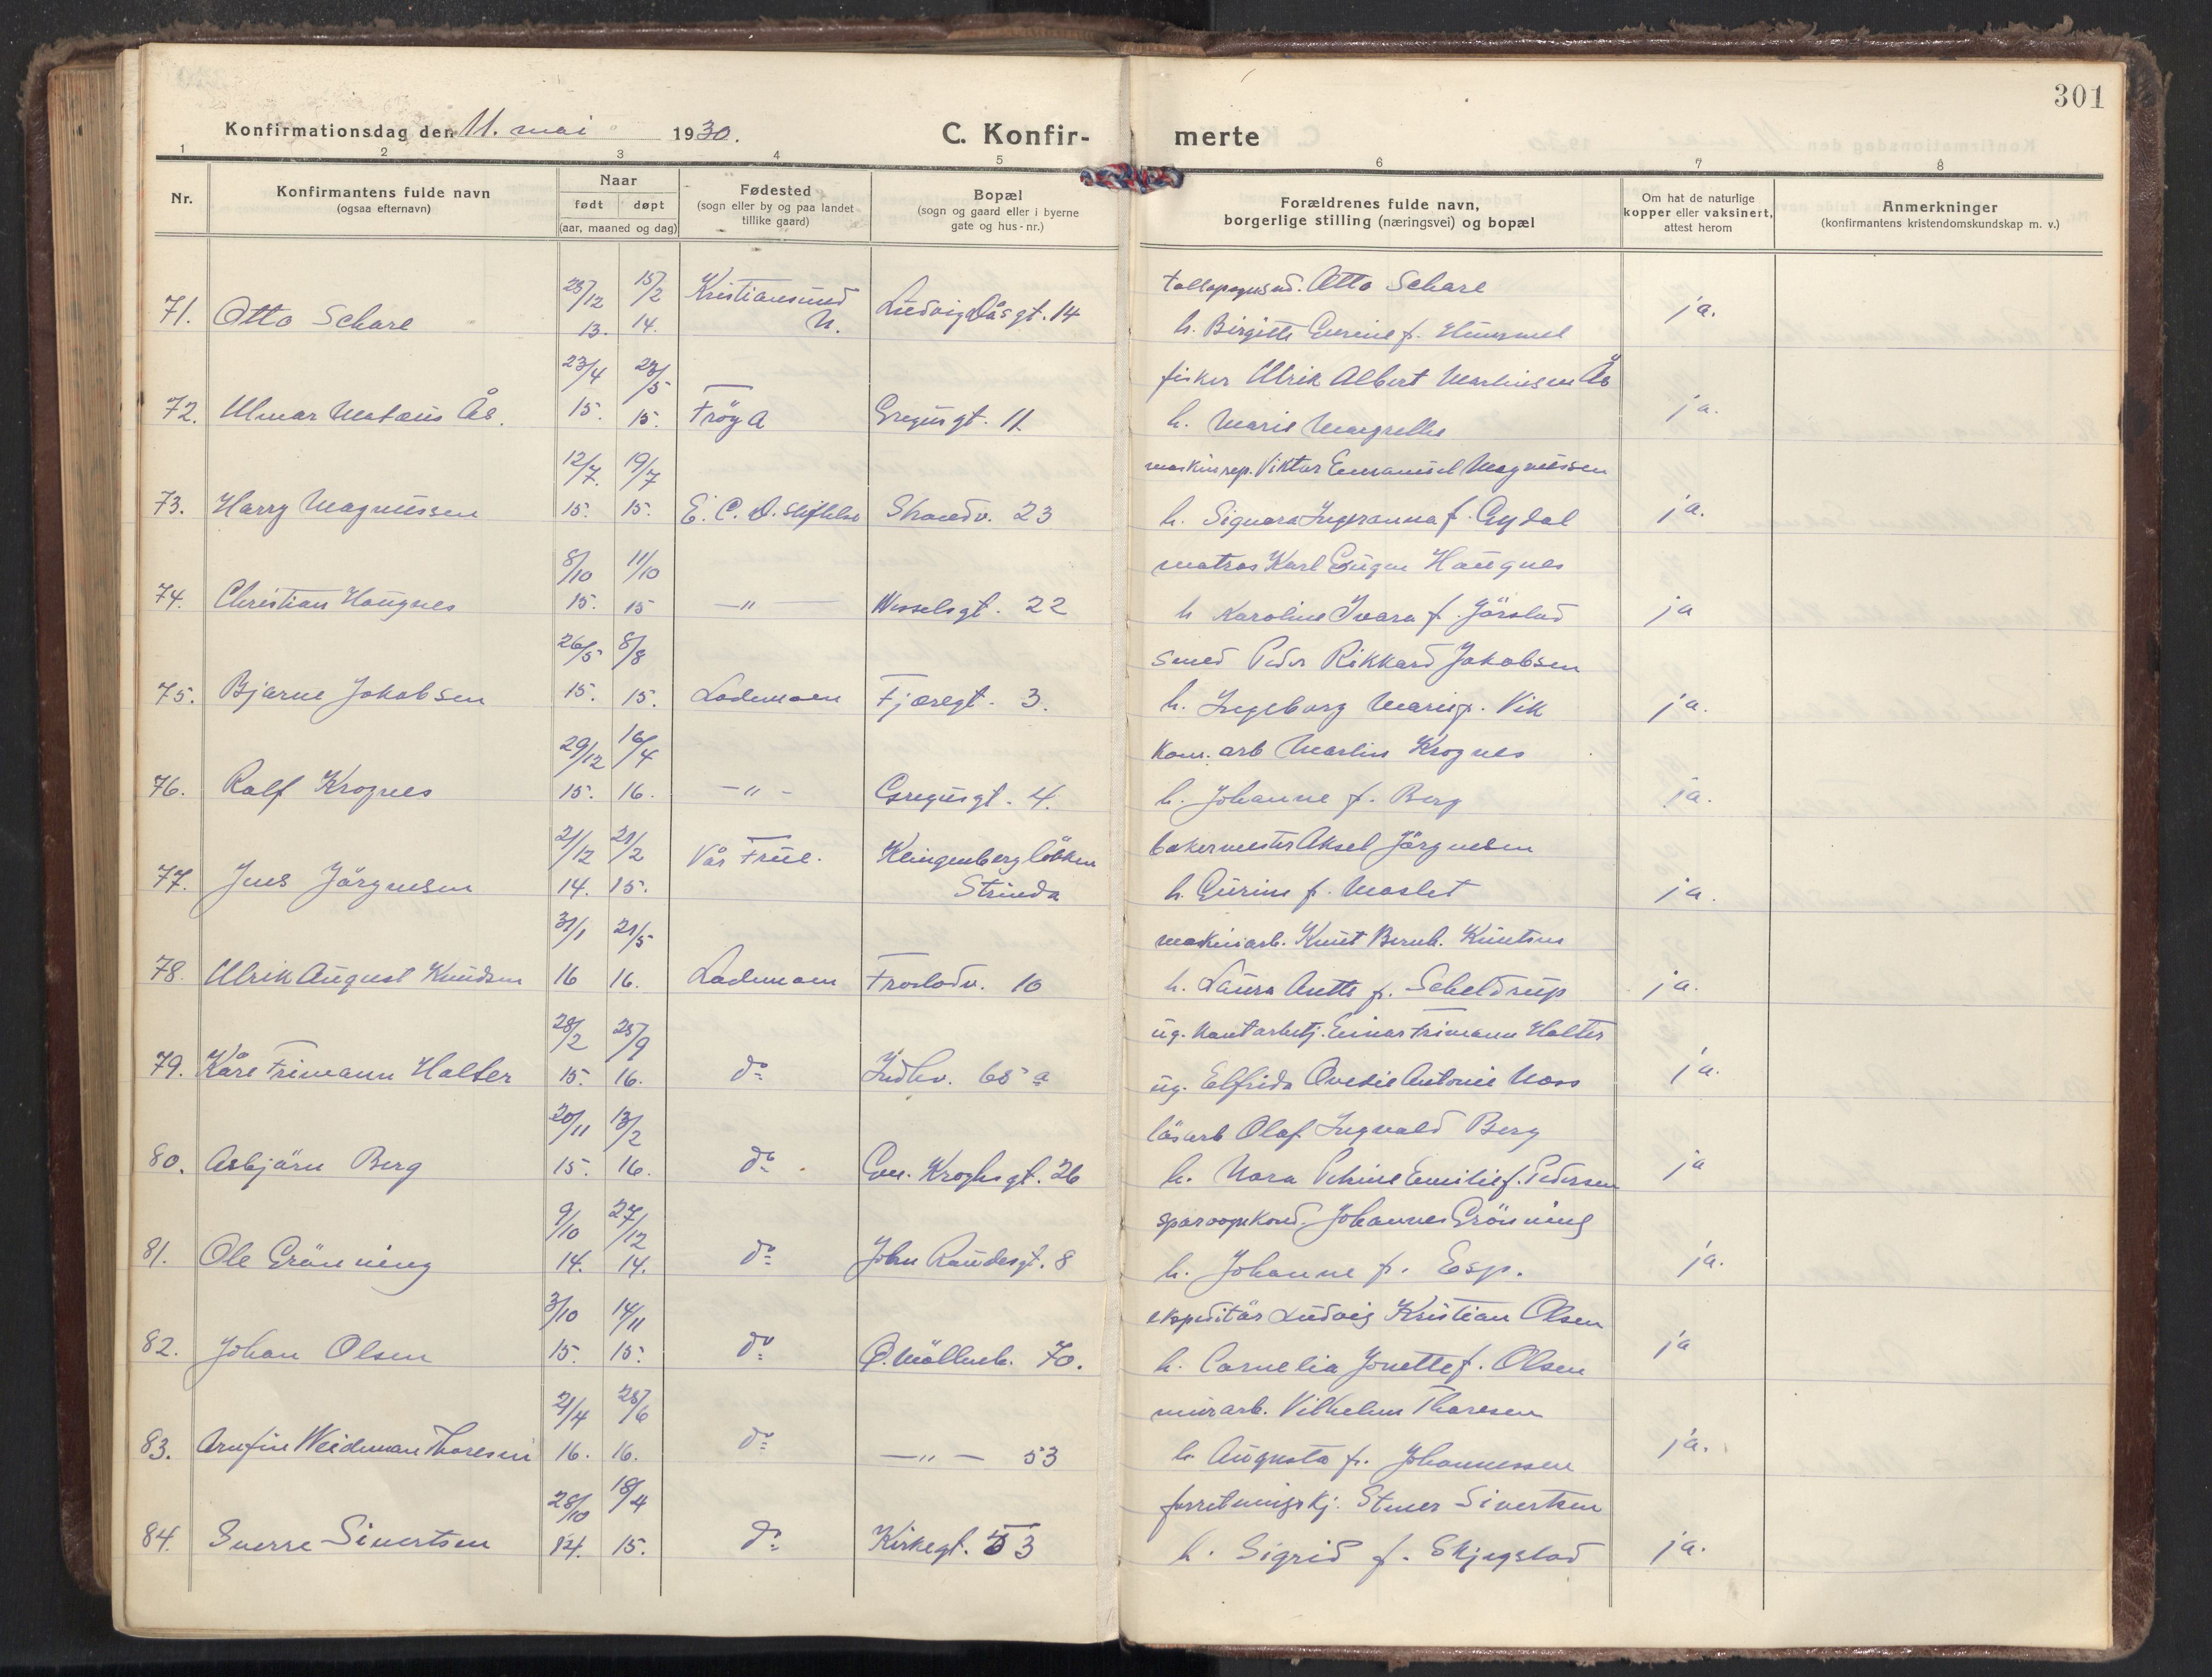 301
Konfirmationsdag den 11. mai 1930. C. Konfir- merte
1 2 3 4 5 6 7 8
Nr. Konfirmantens fulde navn (ogsaa efternavn) Naar født døpt (aar, maaned og dag) Fødested (sogn eller by og paa landet tillike gaard) Bopæl (sogn og gaard eller i byerne gate og hus-nr.) Forældrenes fulde navn, borgerlige stilling (næringsvei) og bopæl Om hat de naturlige kopper eller vaksinert, attest herom Anmerkninger (konfirmantens kristendomskundskap m. v.)
25/12 15/2 Kristiansund Otto Schare
71. Otto Schare 13. 14. N. Ludvig Dåsgt. 14 h. Birgitte f. ja.
23/4 23/5 fisker Ulrik Albert Martinsen Ås
72. Ulmar Mataus Ås. 15. 15. Frøya Gregusgt. 11. h. Marie Margrethe ja.
12/7 19/7 maskinrep. Viktor Emanuel Magnussen
73. Harry Magnussen 15. 15. E. C. D. stiftelse Strandv. 23 h. Signora Ingeranna f. Gydal ja.
8/10 11/10 matros Karl Eugen Haugnes
74. Christian Haugnes 15. 15 —"— Wesselsgt. 22 h Karoline Ivara f. Jörstad ja
26/5 8/8 smed Peder Rikkard Jakobsen
75. Bjarne Jakobsen 15. 15. Lademoen Fjæregt. 3. h. Ingeborg Marie f. Vik ja.
29/12 16/4 kom. arb Martin Krognes
76. Ralf Krognes 15. 16. —"- Gregusgt. 4. h. Johanne f. Berg ja.
21/12 21/2 Vår Frue. Klingenberg løkken bakermester Aksel Jörgensen
77. Jens Jörgensen 14. 15. Strinda h. Gurine f. Moslet ja.
31/1 21/5 maskinarb. Knut Bernh. Knutsen
78. Ulrik August Knudsen 16 16. Lademoen Frostadv. 10 h. Laura Anette f. Scheldrup ja.
28/2 25/9 ug. Einar Frimann Halter
79. Kåre Frimann Halter 15. 16. do Indhv. 65 a ug. Elfrida Ovedie Antonie Moss ja.
20/11 13/2 läsarb Olaf Ingvald Berg
80. Asbjörn Berg 15. 16. do Gen. Kroghsgt. 26 h. Nora Petrine Emilie f. Pedersen ja
9/10 27/12 sporvognkond. Johannes Grönning
81. Ole Grönning 14. 14. do John Raudesgt. 8 h. Johanne f. Esp. ja.
3/10 14/11 ekspeditör Ludvig Kristian Olsen
82. Johan Olsen 15. 15. do Ø. Möllenb. 70. h. Cornelia Jonette f. Olsen ja
21/4 25/6 murarb. Vilhelm Thoresen
83. Arnfin Weideman Thoresen 16. 16. do —"— 53 h. Augusta f. Johannessen ja.
28/10 18/4 forretningskj. Stener Sivertsen
84. Sverre Sivertsen 14. 15. do Kirkegt. 53 h. Sigrid f. Skjegstad ja.